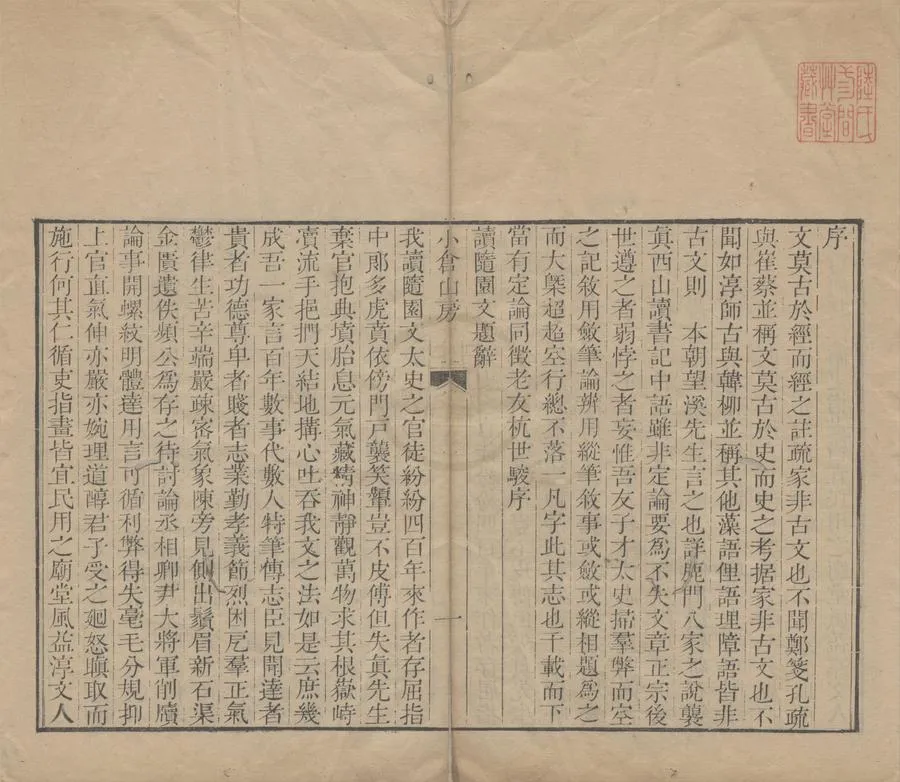 陸氏
三間
艸堂
藏書
序
文莫古於經而經之註疏家非古文也不聞鄭箋孔疏
與崔蔡並稱文莫古於史而史之考据家非古文也不
聞如淳師古與韓柳並稱其他藻語俚語理障語皆非
古文則 本朝望溪先生言之也詳鹿門八家之說襲
眞西山讀書記中語雖非定論要為不失文章正宗後
世遵之者弱悖之者妄惟吾友子才太史掃羣弊而空
之記敘用斂筆論辨用縱筆敘事或斂或縱相題為之
而大槩超超空行總不落一凡字此其志也千載而下
當有定論同徵老友杭世駿序
讀隨園文題辭
小倉山房
一
我讀隨園文太史之官徒紛紛四百年來作者存屈指
中郎多虎賁依傍門戸襲笑顰豈不皮傅但失眞先生
棄官抱典墳胎息元氣藏精神靜觀萬物求其根嶽峙
瀆流手挹捫天結地搆心吐吞我文之法如是云庶幾
成吾一家言百年數事代數人特筆傳志臣見聞達者
貴者功德尊卑者賤者志業勤孝義節烈困戹羣正氣
鬱律生苦辛端嚴疎宻氣象陳旁見側出鬚眉新石渠
金匱遺佚頻公為存之待討論丞相卿尹大將軍削牘
論事開螺紋明體達用言可循利弊得失毫毛分規抑
上官直氣伸亦嚴亦婉理道醇君子受之廻怒瞋取而
施行何其仁循吏指畫皆宜民用之廟堂風益淳文人